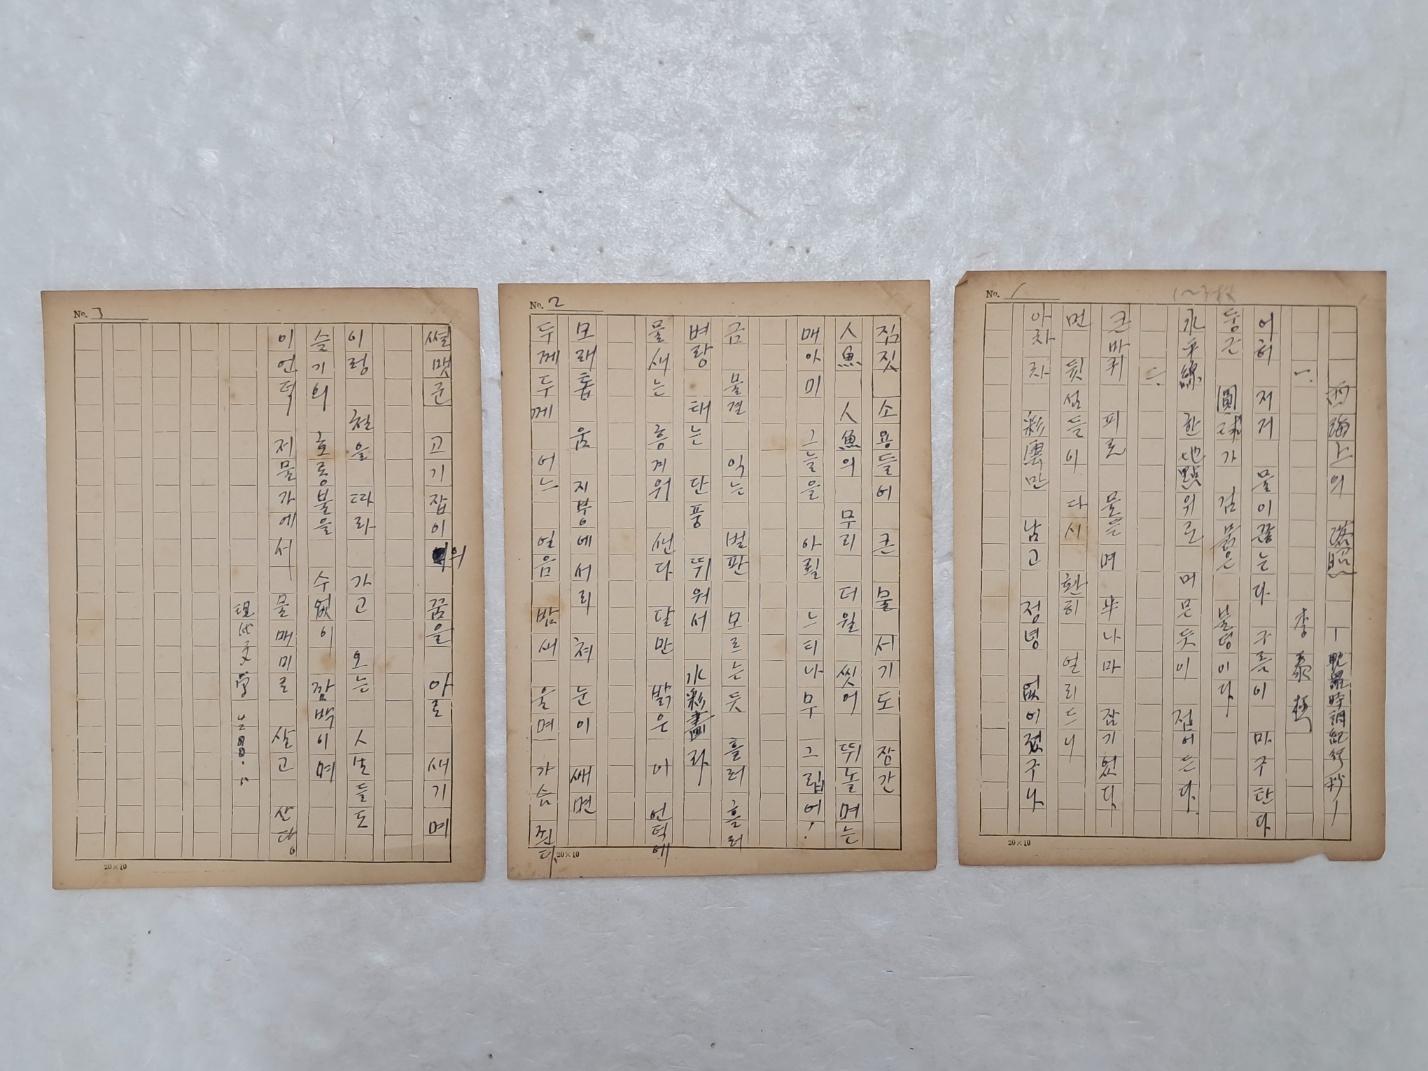 No. 1
西海上의 落照 ―耽羅時調紀行抄―
李泰極
一.
어허 저거 물이 끓는다 구름이 마구 탄다
둥근 圓球가 검붉은 불덩이다
水平線 한 地點위로 머문듯이 접어든다.
二.
큰 바퀴 피로 물들며 반나마 잠기었다
먼 뒷섬들이 다시 환히 얼리드니
아차차 彩雲만 남고 정녕 없어졌구나
20×10
No. 2
짐짓 소용들어 큰 물 서기도 잠간
人魚 人魚의 무리 더월 씻어 뛰놀며는
매아미 그늘을 아릴 느티나무 그립어!
금 물결 익는 벌판 모르는듯 흘러 흘러
벼랑 태는 단풍 띄워서 水彩畵라
물새는 흥겨워 센다 달만 밝은 이 언덕에
모래톱 움 지붕에 서리 쳐 눈이 쌔면
두께 두께 어느 얼음 밤새 울며 가슴 찐다
20×10
No. 3
썰맷군 고기잡이의 꿈을 아로 새기며
이렁 철을 따라 가고 오는 人生들도
슬기의 호롱불을 수없이 깜박이며
이 언덕 저 물가에서 물매미로 살고 산당
現代文學
20×10